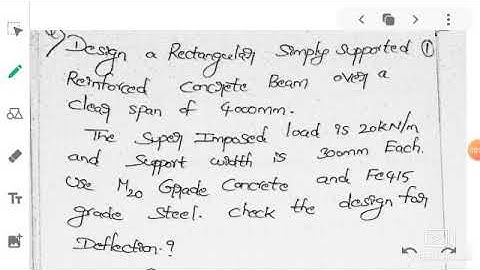 4) Design a Rectangular Simply Supported ①
Reinforced Concrete Beam over a
clear span of 4000mm.
The Super Imposed load is 20kN/m
and Support width is 300mm Each.
Use M20 Grade Concrete and Fe415
grade Steel. Check the design for
Deflection.?